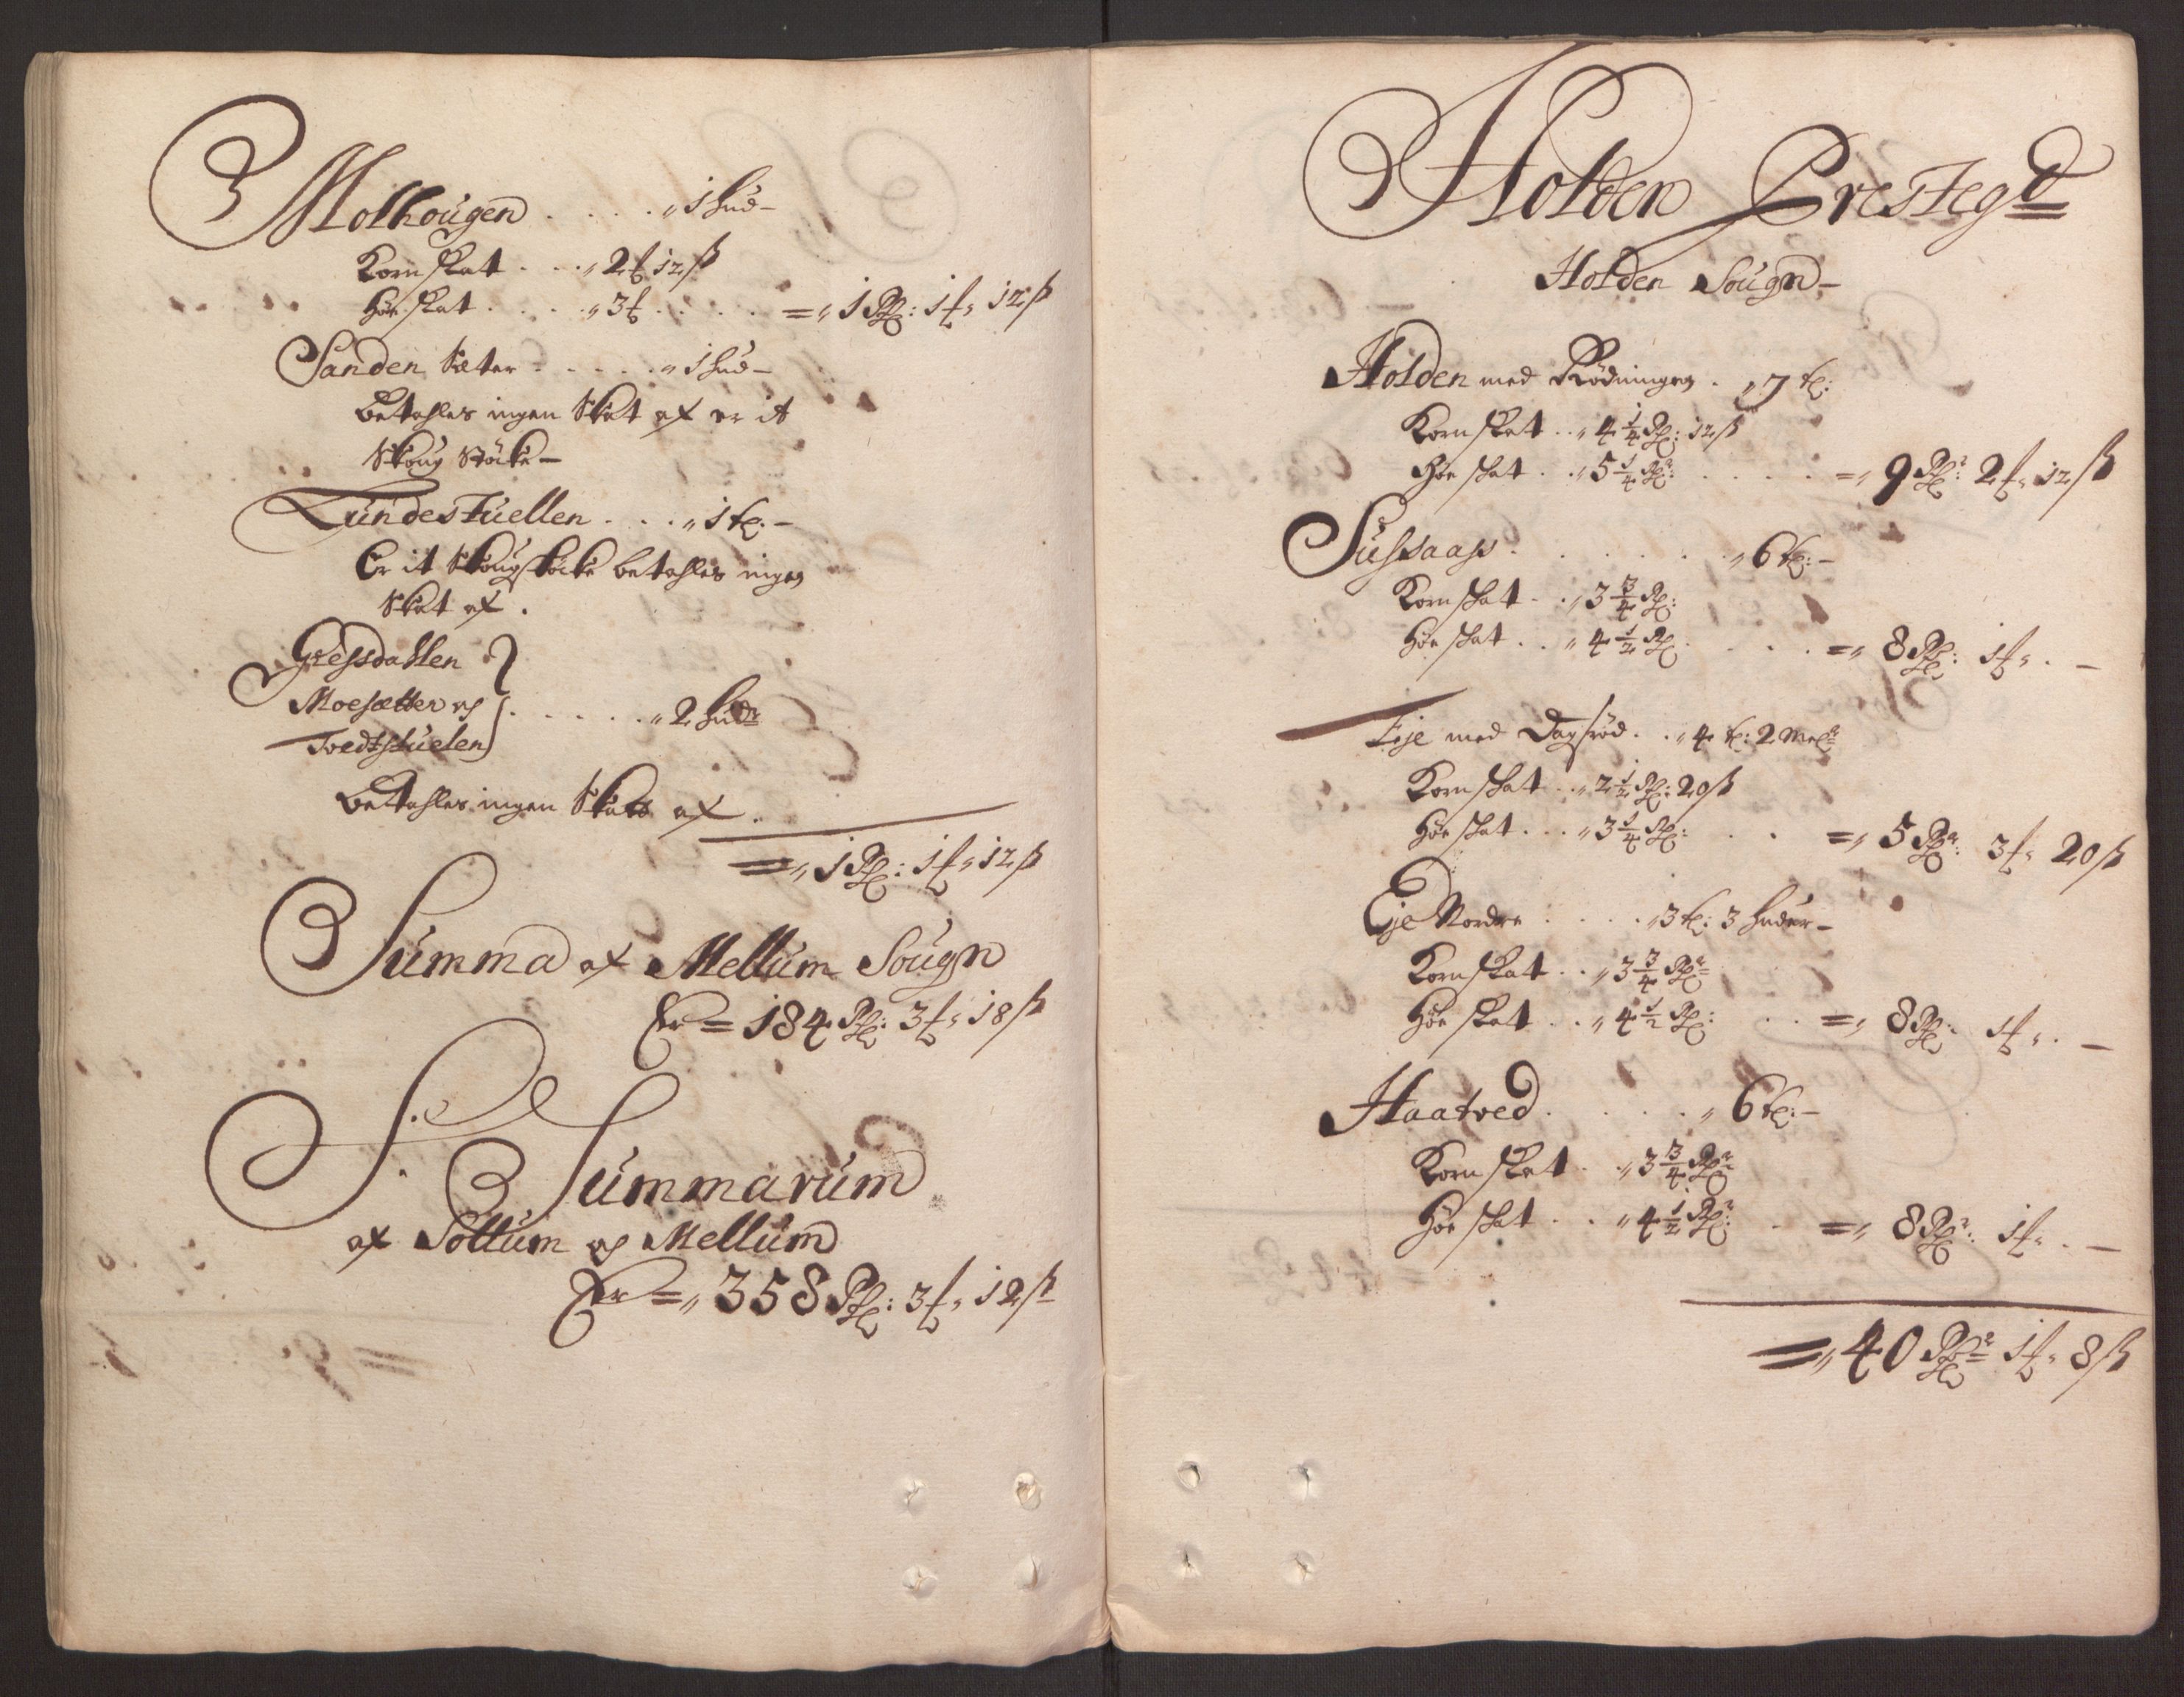 Molhougen . . . . „ 1 hud –
Kornskat . . . „ 2 f 12 ß
Høeskat . . . . „ 3 f . . . . = „ 1 Rdl: 1 f „ 12 ß
Sanden Sæter . . . . . „ 1 hud –
Betahles ingen Skat af er it
Skoug Støcke –
Lundestuellen . . . „ 1 tl. –
Er it Skougstøcke betahles ingen
Skat af .
Giessdahlen
Moesætter og . . . . . . „ 2 hudr
Tvedtstuelen
Bettahles ingen Skatt af .
= „ 1 Rdl: 1 f „ 12 ß
Summa af Mellum Sougn
Er = 184 Rdl: 3 f „ 18 ß
S. Summarum
af Sollum og Mellum
Er = „ 358 Rdl: 3 f „ 12 ß
Holden Prestegd
Holden Sougn –
Holden med Rødningen . „ 7 tl:
Kornskat . . „ 4 1/4 Rdl: 12 ß
Høeskat . . „ 5 1/4 Rdr: . . . . = „ 9 Rdr: 2 f „ 12 ß
. . . . . . „ 6 tl: –
Kornskat . . „ 3 3/4 Rdl:
Høeskat . . „ 4 1/2 Rdl . . . . = „ 8 Rdl: 1 f „ . –
Eje med Dagsrød . . „ 4 tl: 2 Melr
Kornskat . . „ 2 1/2 Rdl: 20 ß
Høeskat . . . „ 3 1/4 Rdl: . . = „ 5 Rdr: 3 f „ 20 ß
Eje Nordre . . . . „ 3 tl: 3 huder –
Kornskat . . „ 3 3/4 Rdr
Høeskat . . „ 4 1/2 Rdl: . . = „ 8 Rdl: 1 f „ . –
Haatved . . . . . „ 6 tl: –
Kornskat . . „ 3 3/4 Rdr
Høeskat . . „ 4 1/2 Rdr: . = „ 8 Rdr: 1 f „ . –
= „ 40 Rdr 1 f „ 8 ß